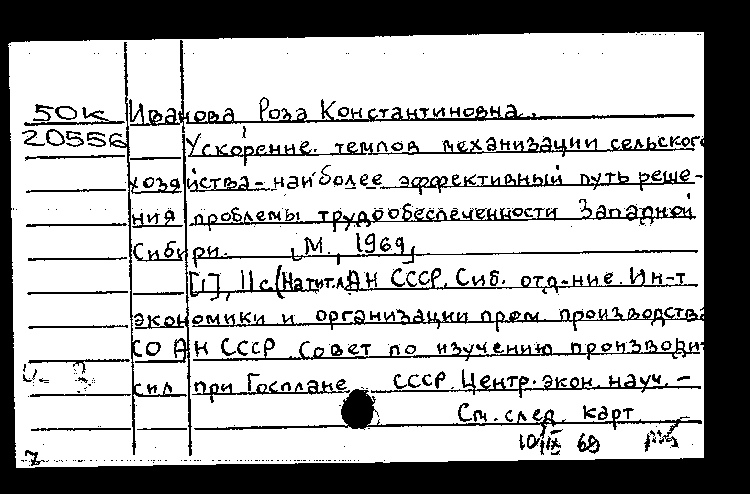 50к Иванова Роза Константиновна.
20556 Ускорение темпов механизации сельского
хозяйства - наиболее эффективный путь реше-
ния проблемы трудообеспеченности Западной
Сибири. [М., 1969]
[1], 11с. (На тит. л. АН СССР. Сиб. отд-ние. Ин-т
экономики и организации пром. производства
СО АН СССР. Совет по изучению производит.
сил при Госплане СССР. Центр. экон. науч. -
См. след. карт.
10/IX 69
7